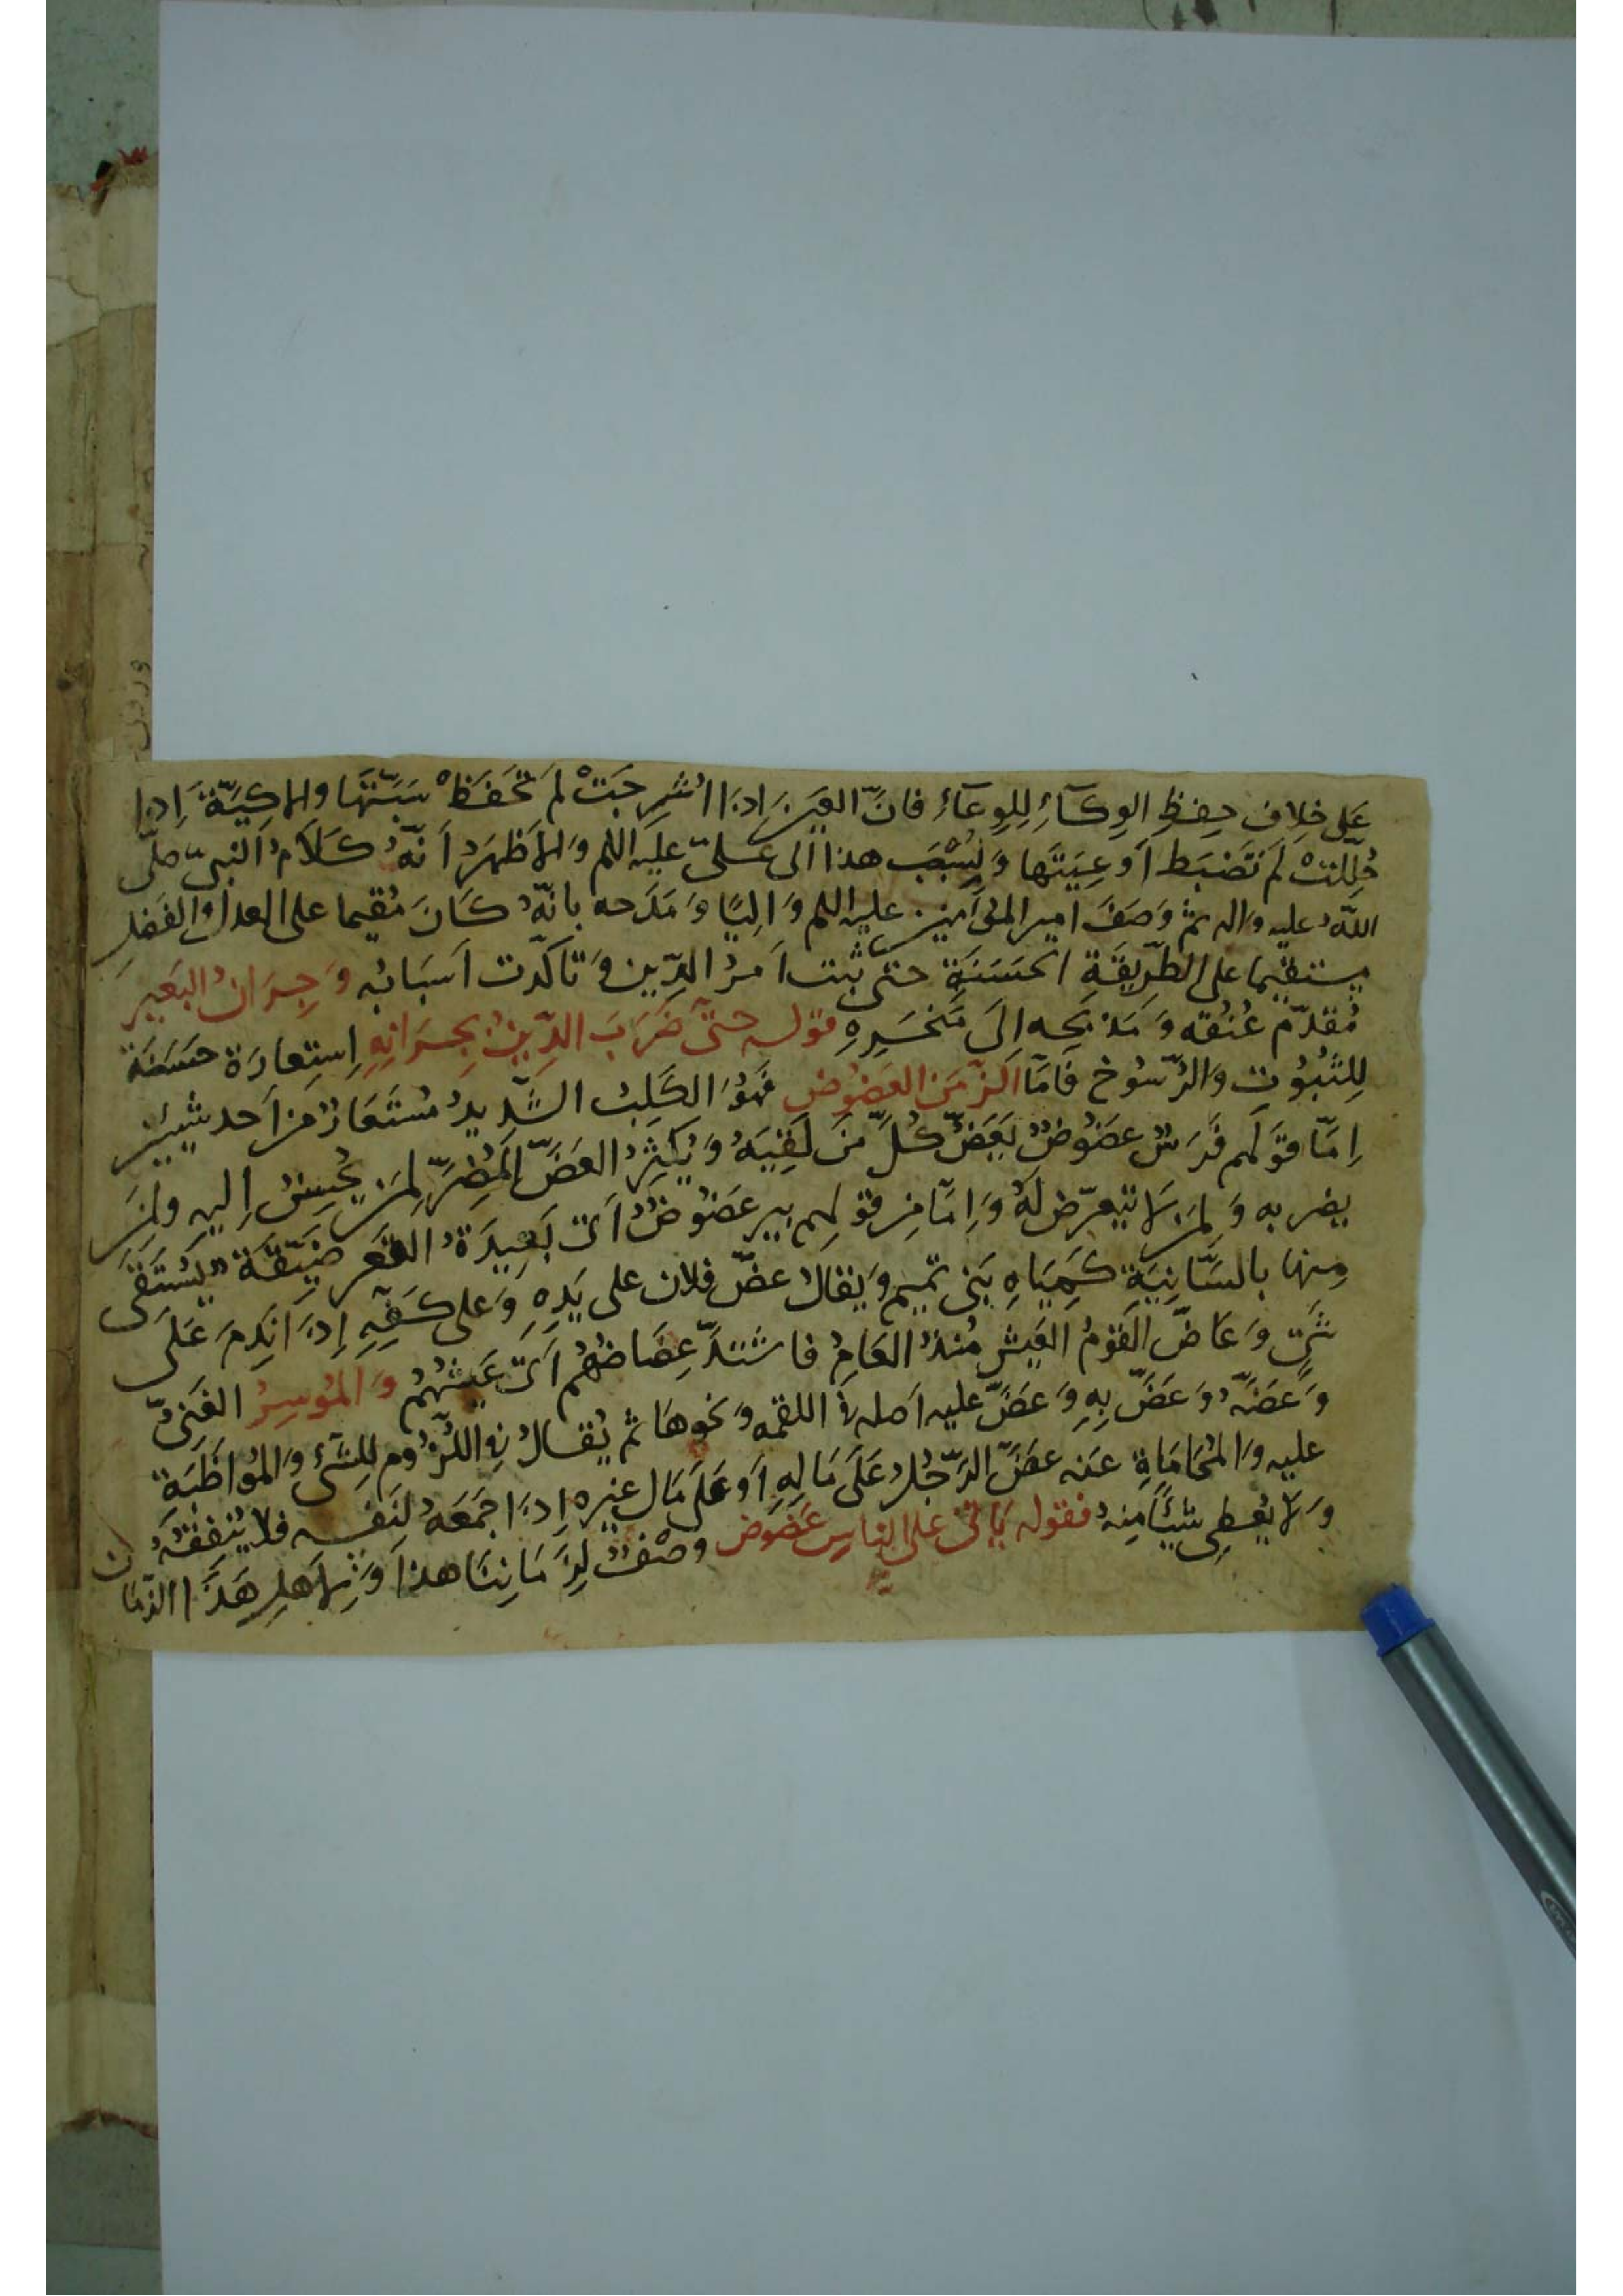 عَلى خِلافِ حِفظِ الوِكَآءِ لِلوِعَآءِ فانَّ العَينَ اِذَا اُشرِجَتْ لَم تَحفَظْ سَتَهَا والاوكِيَةُ اِذا
حُلِّلتْ لَم تَضبَط اَوعِيَتَهَا وَنُسِبَ هذا الى عَليّ عليه اللم وَالاَظهَرُ اَنّهُ كَلَامُ النبيّ صلى
اللهُ عليه واله ثم وَصَفَ امير المؤمنين عليه اللم وَالِيًا وَمَدَحه بانّهُ كَانَ مُقيما على العدل والفضل
مستقيما على الطّرِيقَةِ الحَسَنَةِ حتى ثبت اَمرُ الدِّين وَتاكّدت اَسبَابُه وَجِرَانُ البَعِيرِ
مُقدّم عُنُقه وَمَذبَحِه اِلَى مَنحَرِهِ قوله حتّى ضَرَبَ الدِّينُ بِجِرَانِهِ اِستِعارَة حسَنَة
لِلثُّبُوُتِ وَالرُّسُوخ فَامَّا الزّمَن العَضُوض فَهُوَ الكَلِبُ الشّدِيدُ مُستَعَارٌ من اَحد شيئين
اِمّا قَولهم فَرَسٌ عضُوضٌ يَعَضّ كُلّ مَن لَقِيَهُ وَيُكثِرُ العَضّ المُضِرّ لمن يُحسِنُ اِليهِ ولمن
يضربه وَلمن لَا يتعرّض لَهُ وَاِمّا من قولهم بير عَضُوضٌ اَى بَعِيدَةُ القَعر ضيِّقَة يُستَقى
مِنها بالسَّانِيَةِ كَمِيَاهِ بَنى تميم وَيقالُ عضّ فلان على يَدِهِ وَعلى كفّهِ اِذَا نَدِمَ عَلى
شَئ وَعَاضّ القَومُ العَيش مُنذُ العَامِ فاشتَدّ عِضَاضُهُم اَى عَيشُهُم وَالمُوسِرُ الغَنِىُّ
وَعَضَّهُ وَعَضّ بِهِ وَعَضّ عليه اَصله فى اللقمه وَنحوهَا ثم يُقالُ فِى اللُّزُومِ لِلشَّئ وَالمُواظَبَةِ
عليه وَالمُحَامَاةِ عَنه عضّ الرّجُلُ عَلَى مَالِهِ اَو عَلى مَال غيره اِذَا جَمَعَهُ لِنَفسه فلا يُنفِقُهُ
وَلَا يُعطِى شَيئًا مِنهُ فقوله يَاتى على الناس عَضُوض وصْفٌ لِزَمَانِنَا هذا وَلاَهلِ هَذَا الزّمَان